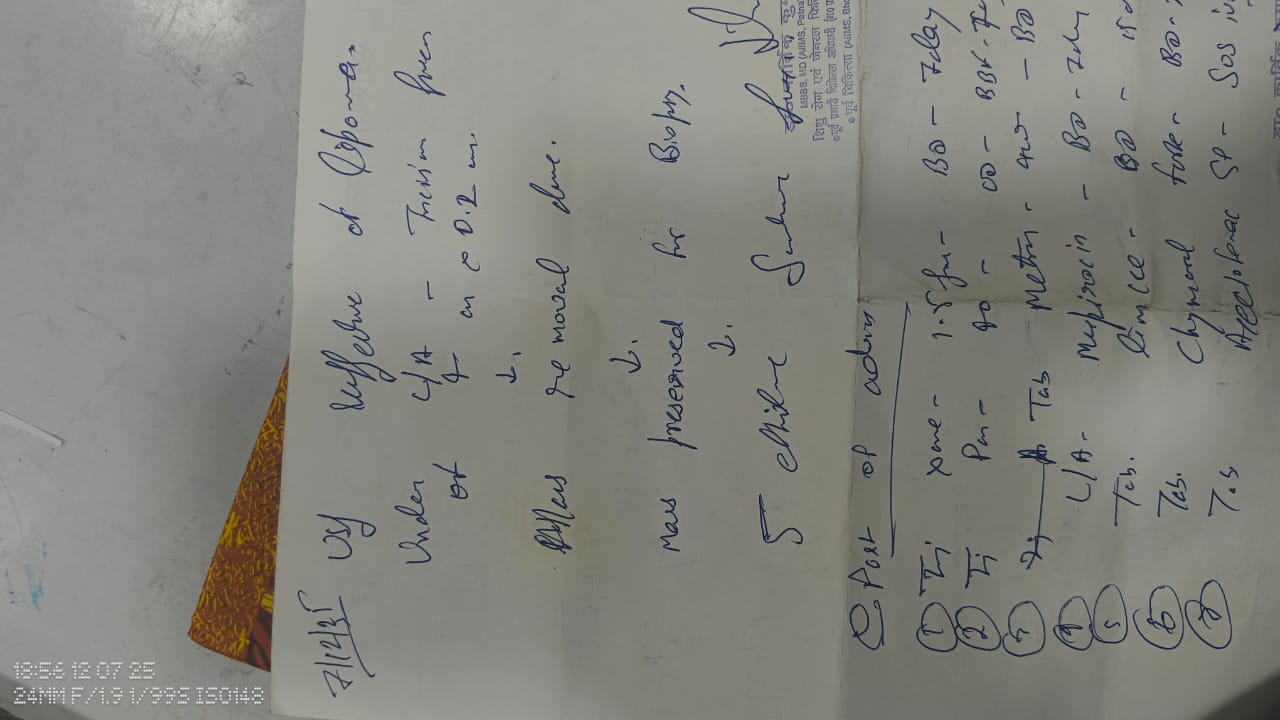 7/12/25 USG suggestive of Lipoma.
Under L/A - Incision given
of 4 cm x 0.2 cm.
↓.
Mass removal done.
↓.
Mass preserved for Biopsy.
↓.
5 ethilon Suture
MBBS, MD (AIIMS, Patna
शिशु रोग एवं जेनरल
पूर्व चिकित्सा (AIIMS, Bho
Post op advice
① Inj xone - 1.5 gm - BD - 7day
② Inj Pan - 40 - OD - BBF
③ Tab Metro - 400 - BD
④ L/A. Mupirocin - BD - 7day
⑤ Tab. Limcee - BD -
⑥ Tab. Chymoral forte - BD -
⑦ Tab. Aceclofenac SP - SOS
18:56 12 07 25
24MM F/1.9 1/99S ISO143